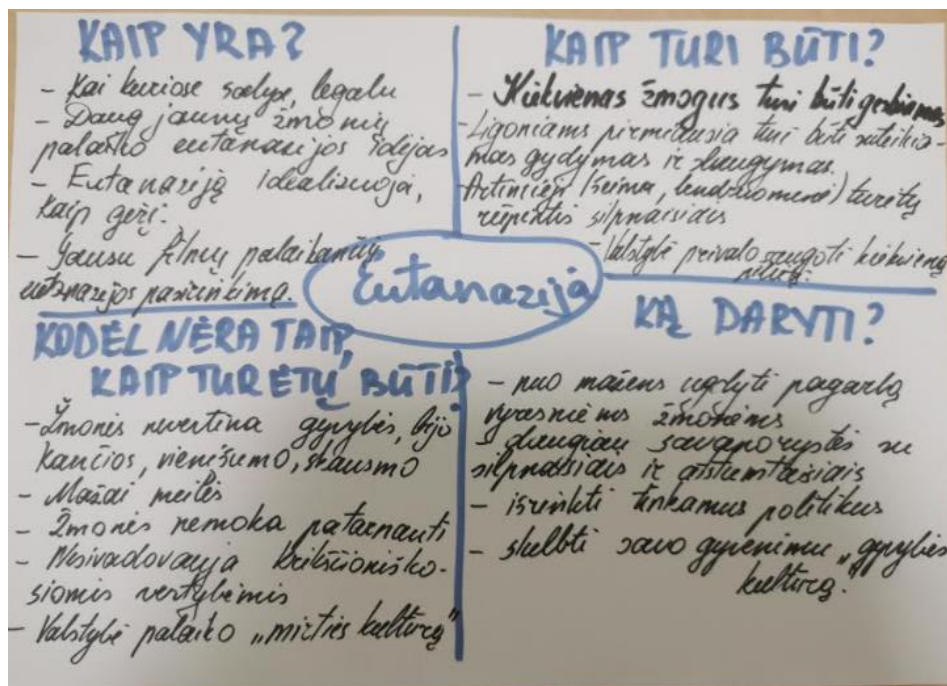 KAIP YRA?
- Kai kuriose šalyse, legalu
- Daug jaunų žmonių
palaiko eutanazijos idėjas
- Eutanaziją idealizuoja,
kaip gėrį.
- Gausu filmų palaikančių
eutanazijos pasirinkimą.
KAIP TURI BŪTI?
- Kiekvienas žmogus turi būti gerbiamas
- Ligoniams pirmiausia turi būti suteikia-
mas gydymas ir slaugymas.
Artimieji (šeima, bendruomenė) turėtų
rūpintis silpnaisiais
- Valstybė privalo saugoti kiekvieną
Eutanazija
KODĖL NĖRA TAIP,
KAIP TURĖTŲ BŪTI?
- Žmonės nevertina gyvybės, bijo
kančios, vienišumo, skausmo
- Mažai meilės
- Žmonės nemoka patarnauti
- Nesivadovauja krikščioniško-
siomis vertybėmis
- Valstybė palaiko „mirties kultūrą"
KĄ DARYTI?
- nuo mažens ugdyti pagarbą
vyresniems žmonėms
- daugiau savanorystės su
silpnaisiais ir atstumtaisiais
- išrinkti tinkamus politikus
- skelbti savo gyvenimu „gyvybės
kultūrą."